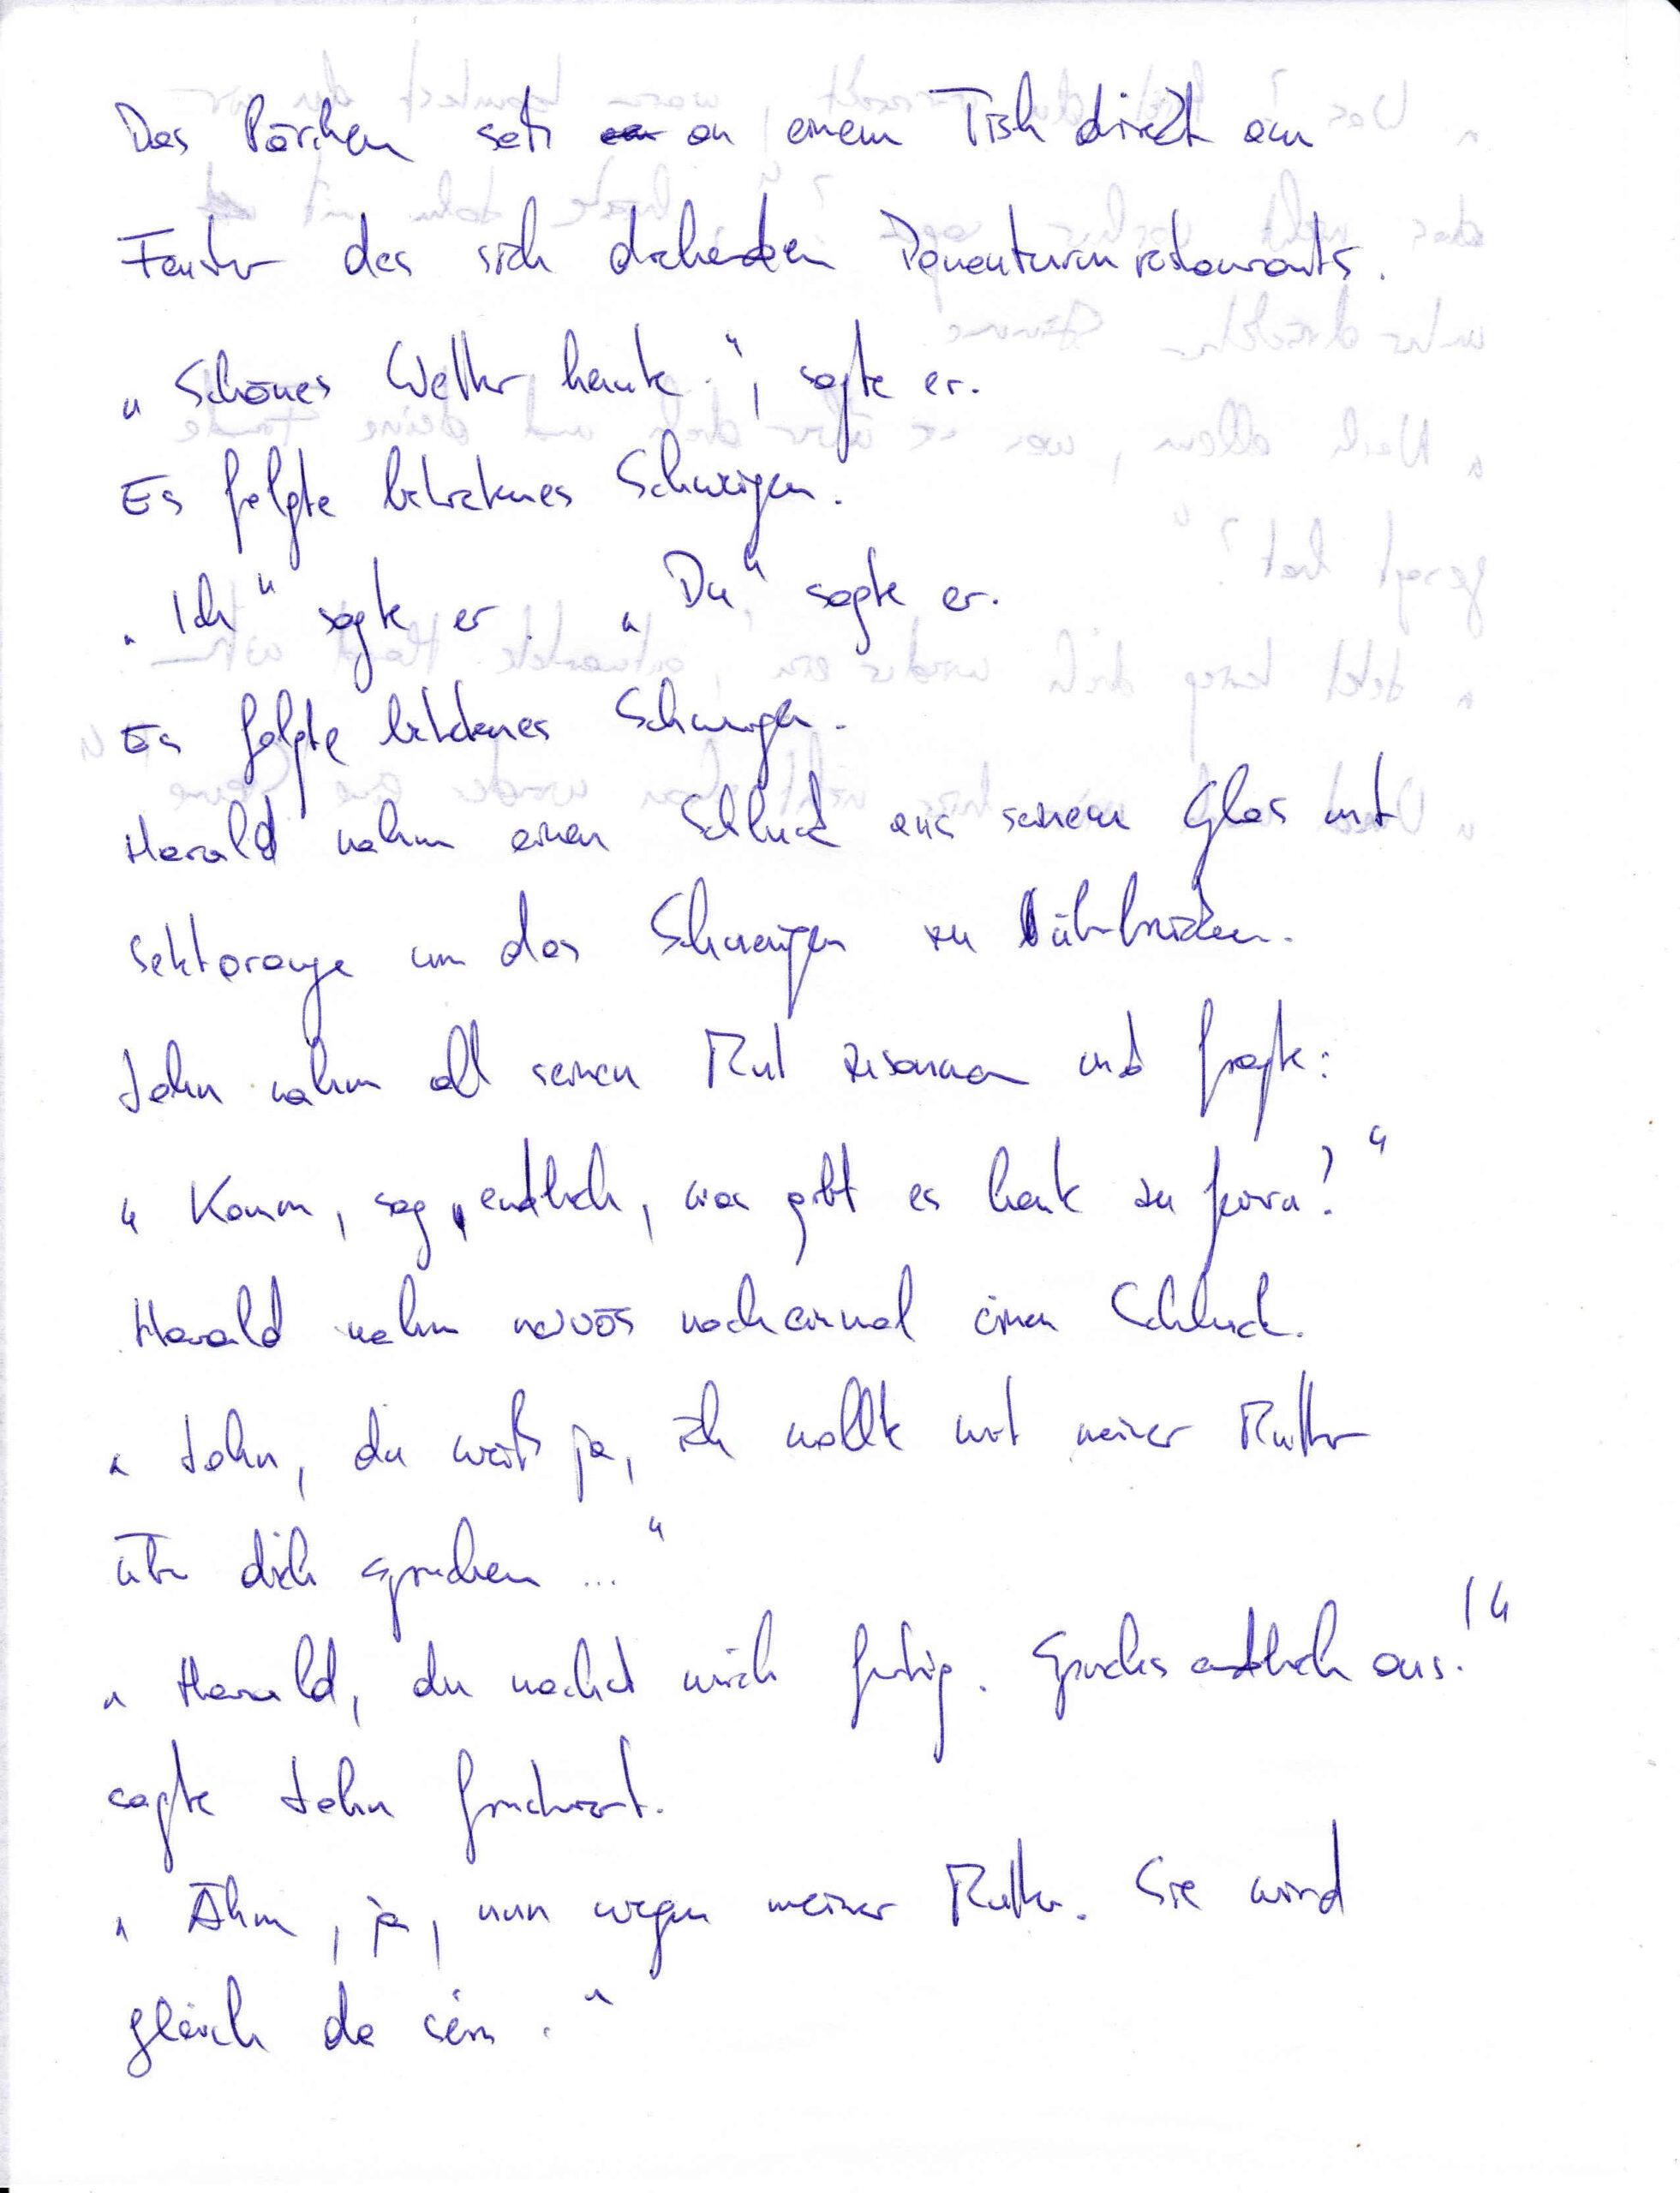 Das Pärchen saß an einem Tisch direkt am
Fenster des sich drehenden Donauturmrestaurants.
„Schönes Wetter heute.", sagte er.
Es folgte betretenes Schweigen.
„Ich" sagte er. „Du" sagte er.
Es folgte betretenes Schweigen.
Harald nahm einen Schluck aus seinem Glas mit
Sektorange um das Schweigen zu überbrücken.
John nahm all seinen Mut zusammen und fragte:
„Komm, sag, endlich, was gibt es heute zu feiern?"
Harald nahm nervös nocheinmal einen Schluck.
„John, du weißt ja, ich wollte mit meiner Mutter
über dich sprechen ..."
„Harald, du machst mich fertig. Sprichs endlich aus!"
sagte John frustriert.
„Ähm, ja, nun wegen meiner Mutter. Sie wird
gleich da sein."